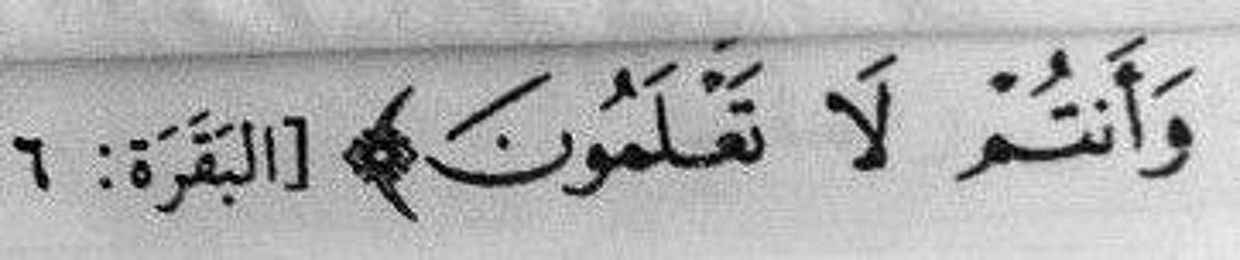 وَأَنتُمْ لَا تَعْلَمُونَ ﴾ [البَقَرَة: ٦